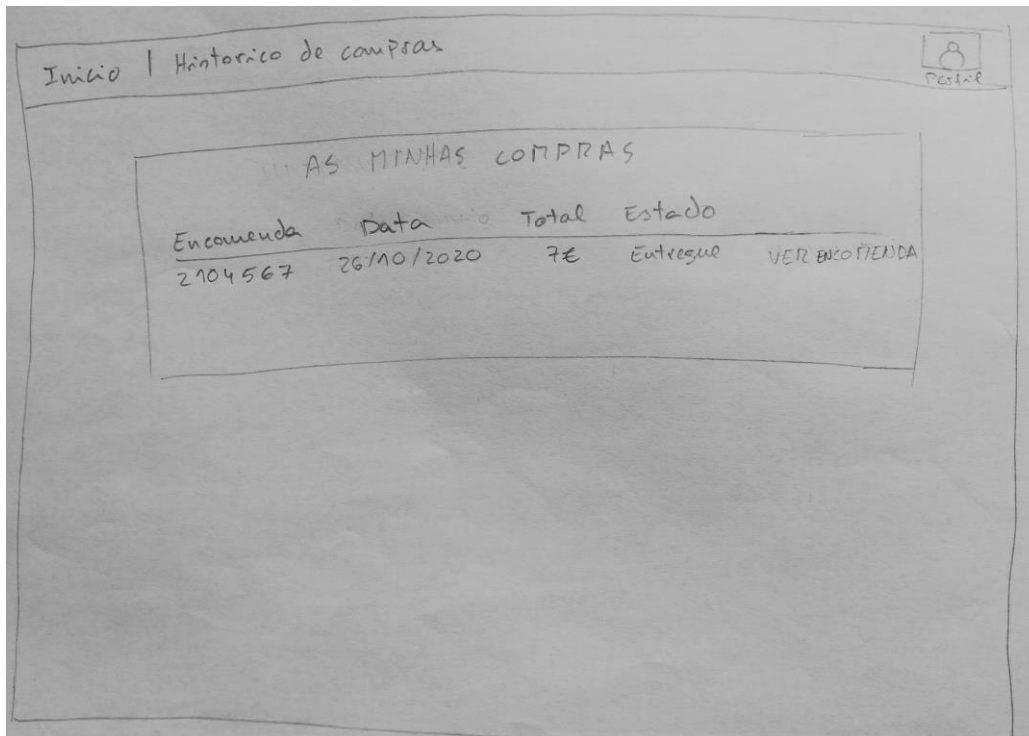 Inicio | Historico de compras
Perfil
AS MINHAS COMPRAS
Encomenda Data Total Estado
2104567 26/10/2020 7€ Entregue VER ENCOMENDA